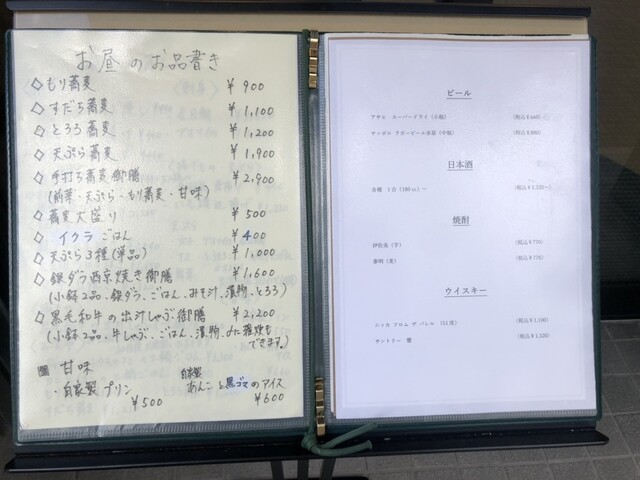 お昼のお品書き
◇もり蕎麦 ¥900
◇すだち蕎麦 ¥1,100
◇とろろ蕎麦 ¥1,200
◇天ぷら蕎麦 ¥1,900
◇手打ち蕎麦御膳 ¥2,900
(前菜・天ぷら・もり蕎麦・甘味)
◇蕎麦大盛り ¥500
◇イクラごはん ¥400
◇天ぷら3種(単品) ¥1,000
◇銀ダラ西京焼き御膳 ¥1,600
(小鉢2品、銀ダラ、ごはん、みそ汁、漬物、とろろ)
◇黒毛和牛の出汁しゃぶ御膳 ¥2,200
(小鉢2品、牛しゃぶ、ごはん、漬物、〆に雑炊も
できます。)
甘味
・自家製プリン
¥500
自家製
あんこと黒ゴマのアイス
¥600
ビール
アサヒ スーパードライ(小瓶)
サッポロ ラガービール赤星(中瓶)
日本酒
各種 1合(180cc)~
焼酎
伊佐美(芋) (税込¥770)
(麦) (税込¥770)
ウイスキー
ニッカ フロム ザ バレル (51度) (税込¥1,100)
サントリー 響 (税込¥1,320)